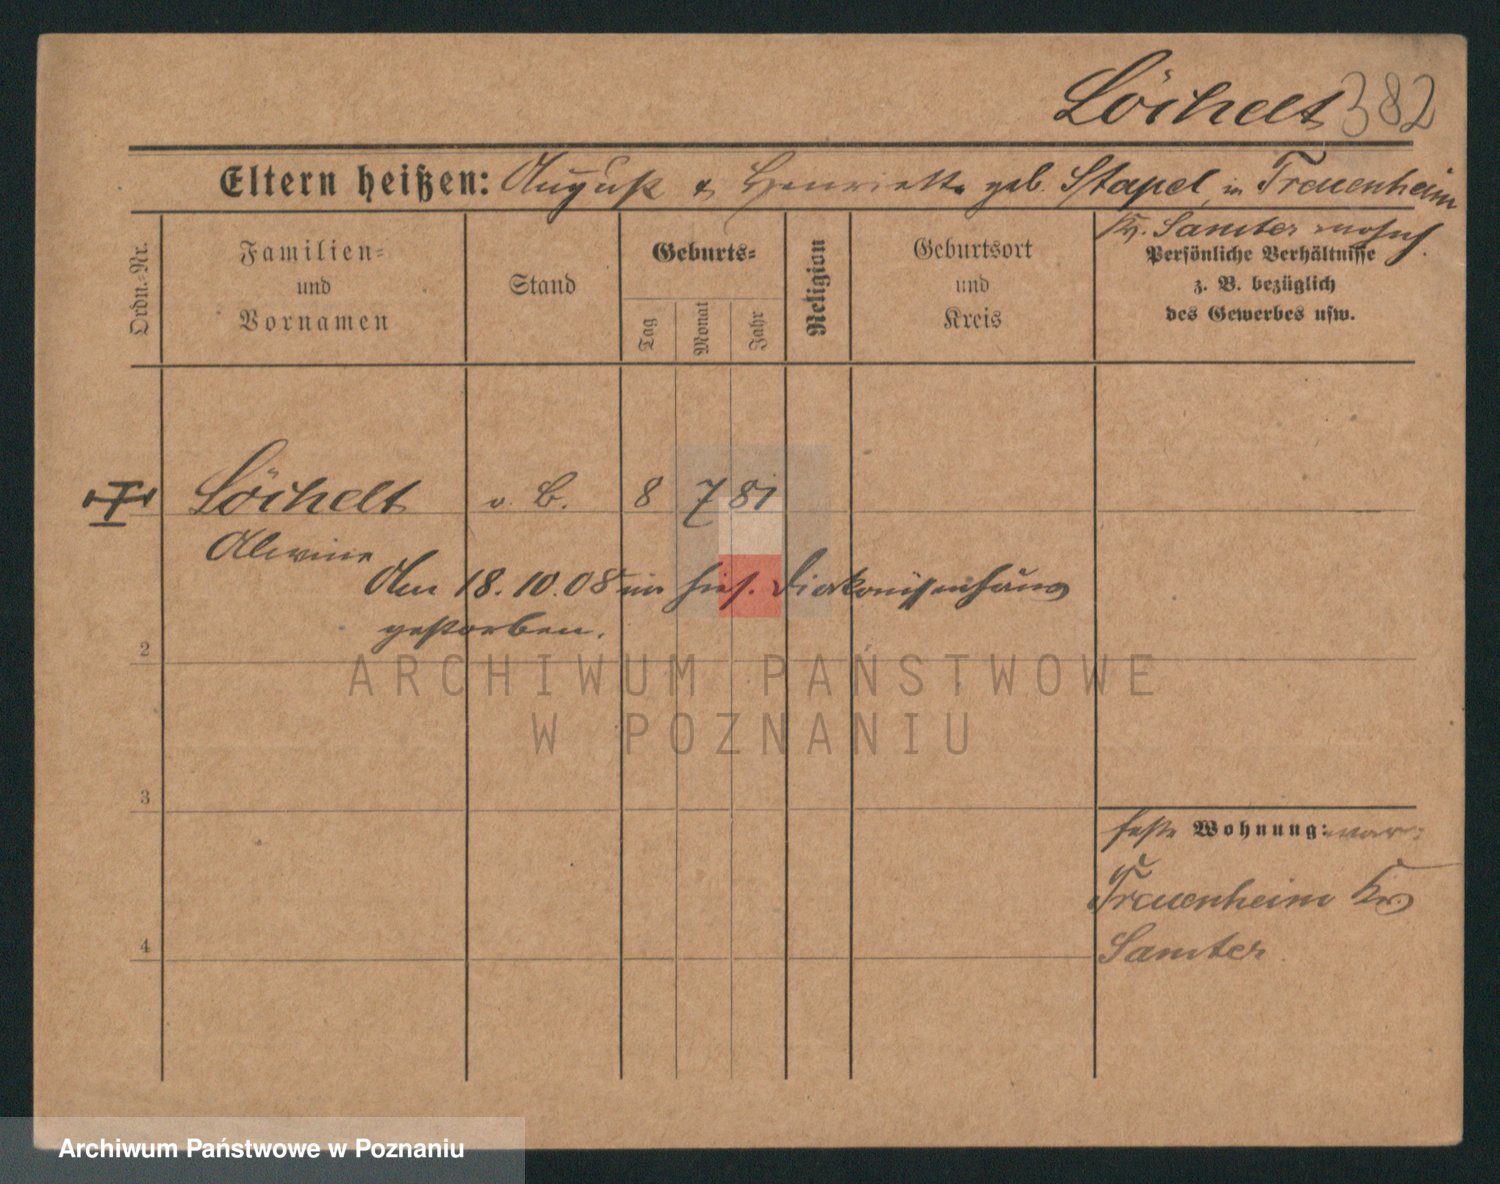 Löchelt 382
Eltern heißen: August & Henriette geb. Stapel, in Trauenheim
Kr. Samter wohnh.
Ordn.-Nr.
Familien-
und
Vornamen
Stand
Geburts-
Tag
Monat
Jahr
Religion
Geburtsort
und
Kreis
Persönliche Verhältnisse
z. B. bezüglich
des Gewerbes usw.
Löchelt o. B. 8 7 81
Alwine
Am 18.10.08 im hies. Diakonissenhaus
gestorben.
2
ARCHIWUM PAŃSTWOWE
W POZNANIU
3
feste Wohnung: war:
Trauenheim Kr.
Samter
4
Archiwum Państwowe w Poznaniu